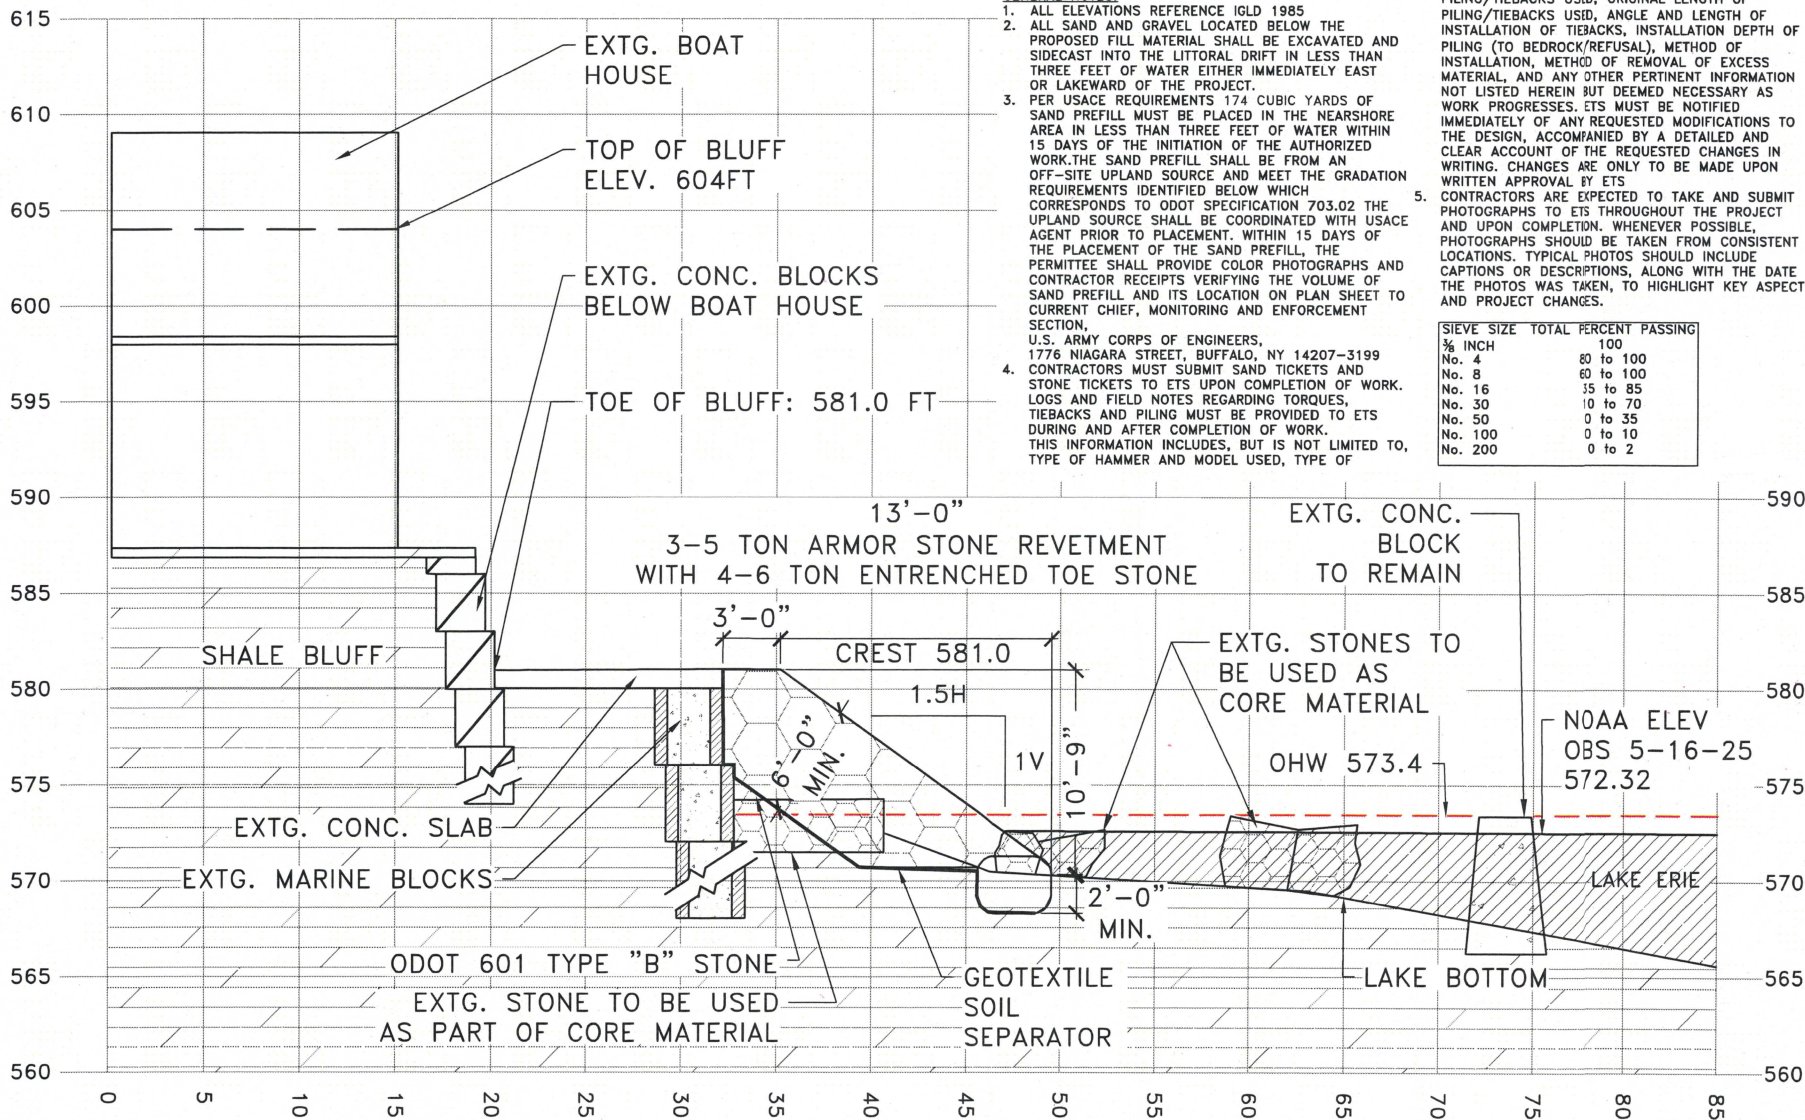 1. ALL ELEVATIONS REFERENCE IGLD 1985
2. ALL SAND AND GRAVEL LOCATED BELOW THE
PROPOSED FILL MATERIAL SHALL BE EXCAVATED AND
SIDECAST INTO THE LITTORAL DRIFT IN LESS THAN
THREE FEET OF WATER EITHER IMMEDIATELY EAST
OR LAKEWARD OF THE PROJECT.
3. PER USACE REQUIREMENTS 174 CUBIC YARDS OF
SAND PREFILL MUST BE PLACED IN THE NEARSHORE
AREA IN LESS THAN THREE FEET OF WATER WITHIN
15 DAYS OF THE INITIATION OF THE AUTHORIZED
WORK.THE SAND PREFILL SHALL BE FROM AN
OFF-SITE UPLAND SOURCE AND MEET THE GRADATION
REQUIREMENTS IDENTIFIED BELOW WHICH
CORRESPONDS TO ODOT SPECIFICATION 703.02 THE
UPLAND SOURCE SHALL BE COORDINATED WITH USACE
AGENT PRIOR TO PLACEMENT. WITHIN 15 DAYS OF
THE PLACEMENT OF THE SAND PREFILL, THE
PERMITTEE SHALL PROVIDE COLOR PHOTOGRAPHS AND
CONTRACTOR RECEIPTS VERIFYING THE VOLUME OF
SAND PREFILL AND ITS LOCATION ON PLAN SHEET TO
CURRENT CHIEF, MONITORING AND ENFORCEMENT
SECTION,
U.S. ARMY CORPS OF ENGINEERS,
1776 NIAGARA STREET, BUFFALO, NY 14207-3199
4. CONTRACTORS MUST SUBMIT SAND TICKETS AND
STONE TICKETS TO ETS UPON COMPLETION OF WORK.
LOGS AND FIELD NOTES REGARDING TORQUES,
TIEBACKS AND PILING MUST BE PROVIDED TO ETS
DURING AND AFTER COMPLETION OF WORK.
THIS INFORMATION INCLUDES, BUT IS NOT LIMITED TO,
TYPE OF HAMMER AND MODEL USED, TYPE OF
PILING/TIEBACKS USED, ORIGINAL LENGTH OF
PILING/TIEBACKS USED, ANGLE AND LENGTH OF
INSTALLATION OF TIEBACKS, INSTALLATION DEPTH OF
PILING (TO BEDROCK/REFUSAL), METHOD OF
INSTALLATION, METHOD OF REMOVAL OF EXCESS
MATERIAL, AND ANY OTHER PERTINENT INFORMATION
NOT LISTED HEREIN BUT DEEMED NECESSARY AS
WORK PROGRESSES. ETS MUST BE NOTIFIED
IMMEDIATELY OF ANY REQUESTED MODIFICATIONS TO
THE DESIGN, ACCOMPANIED BY A DETAILED AND
CLEAR ACCOUNT OF THE REQUESTED CHANGES IN
WRITING. CHANGES ARE ONLY TO BE MADE UPON
WRITTEN APPROVAL BY ETS
5. CONTRACTORS ARE EXPECTED TO TAKE AND SUBMIT
PHOTOGRAPHS TO ETS THROUGHOUT THE PROJECT
AND UPON COMPLETION. WHENEVER POSSIBLE,
PHOTOGRAPHS SHOULD BE TAKEN FROM CONSISTENT
LOCATIONS. TYPICAL PHOTOS SHOULD INCLUDE
CAPTIONS OR DESCRIPTIONS, ALONG WITH THE DATE
THE PHOTOS WAS TAKEN, TO HIGHLIGHT KEY ASPECT
AND PROJECT CHANGES.
SIEVE SIZE TOTAL PERCENT PASSING
⅜ INCH 100
No. 4 80 to 100
No. 8 60 to 100
No. 16 35 to 85
No. 30 10 to 70
No. 50 0 to 35
No. 100 0 to 10
No. 200 0 to 2
615
610
605
600
595
590
585
580
575
570
565
560
EXTG. BOAT
HOUSE
TOP OF BLUFF
ELEV. 604FT
EXTG. CONC. BLOCKS
BELOW BOAT HOUSE
TOE OF BLUFF: 581.0 FT
13'-0"
3-5 TON ARMOR STONE REVETMENT
WITH 4-6 TON ENTRENCHED TOE STONE
3'-0"
CREST 581.0
1.5H
1V
6'-0"
MIN.
10'-9"
2'-0"
MIN.
SHALE BLUFF
EXTG. CONC. SLAB
EXTG. MARINE BLOCKS
ODOT 601 TYPE "B" STONE
EXTG. STONE TO BE USED
AS PART OF CORE MATERIAL
GEOTEXTILE
SOIL
SEPARATOR
EXTG. CONC.
BLOCK
TO REMAIN
EXTG. STONES TO
BE USED AS
CORE MATERIAL
OHW 573.4
NOAA ELEV
OBS 5-16-25
572.32
LAKE ERIE
LAKE BOTTOM
590
585
580
575
570
565
560
0 5 10 15 20 25 30 35 40 45 50 55 60 65 70 75 80 85